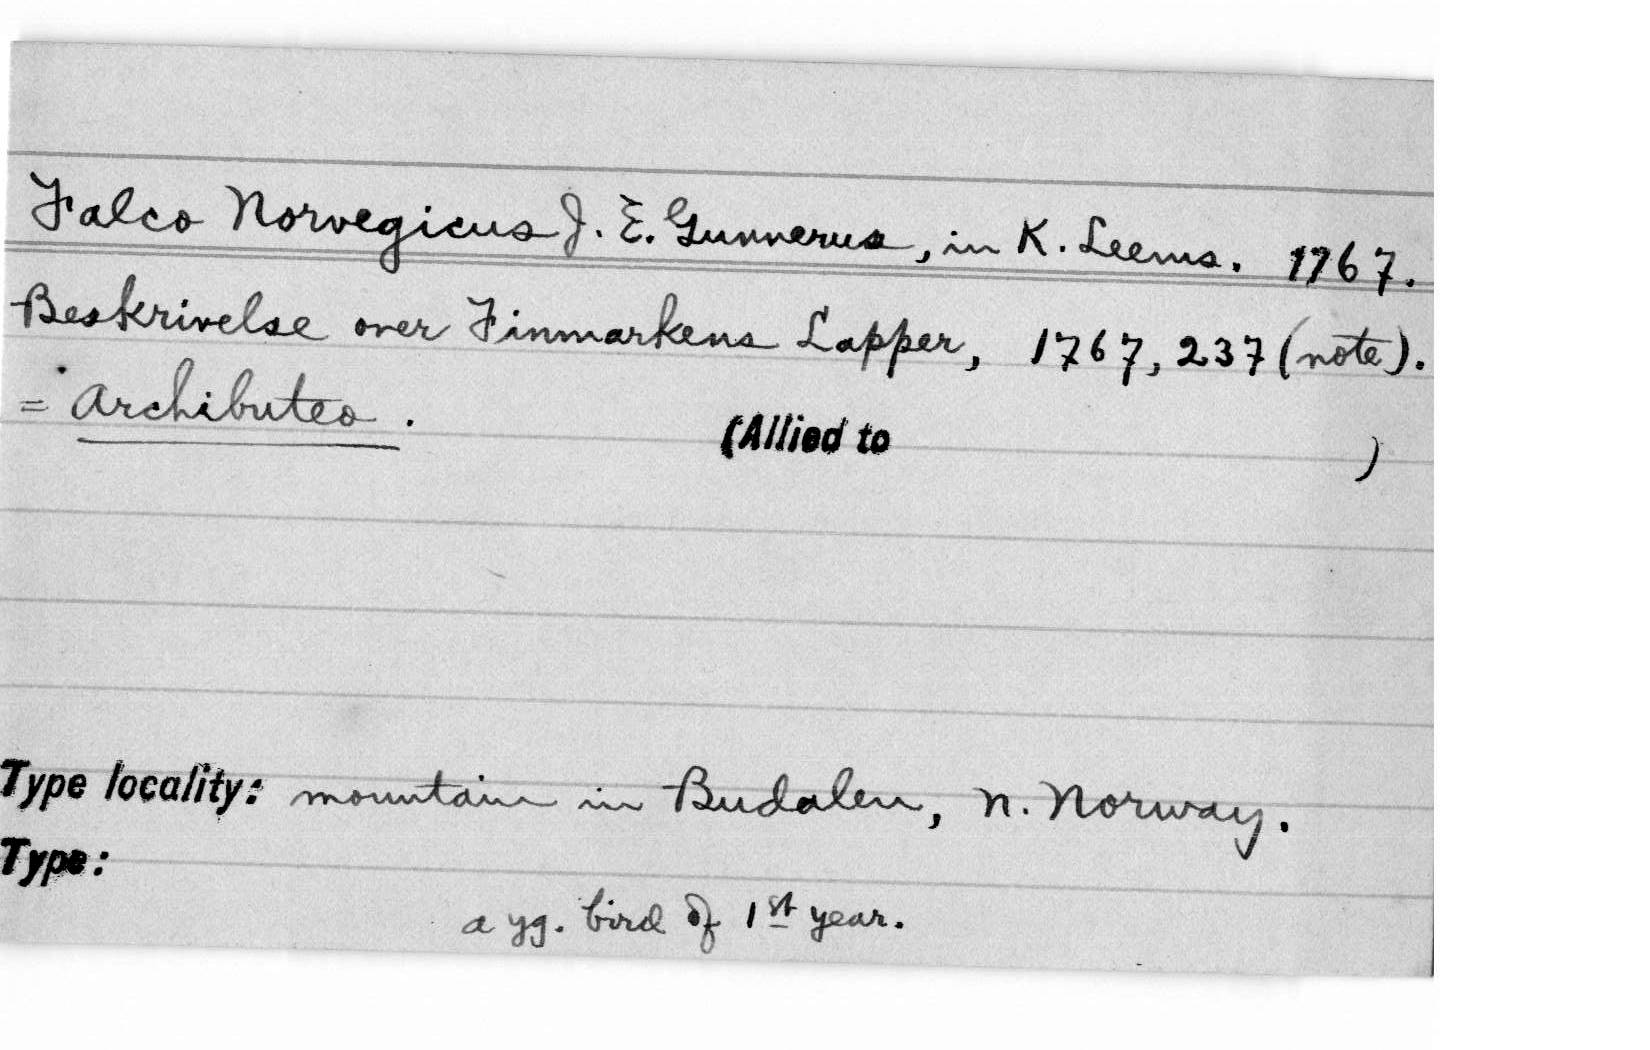 Falco Norvegicus J. E. Gunnerus, in K. Leems. 1767.
Beskrivelse over Finmarkens Lapper, 1767, 237 (note).
= Archibuteo. (Allied to )
Type locality: mountain in Budalen, N. Norway.
Type:
a yg. bird of 1st year.